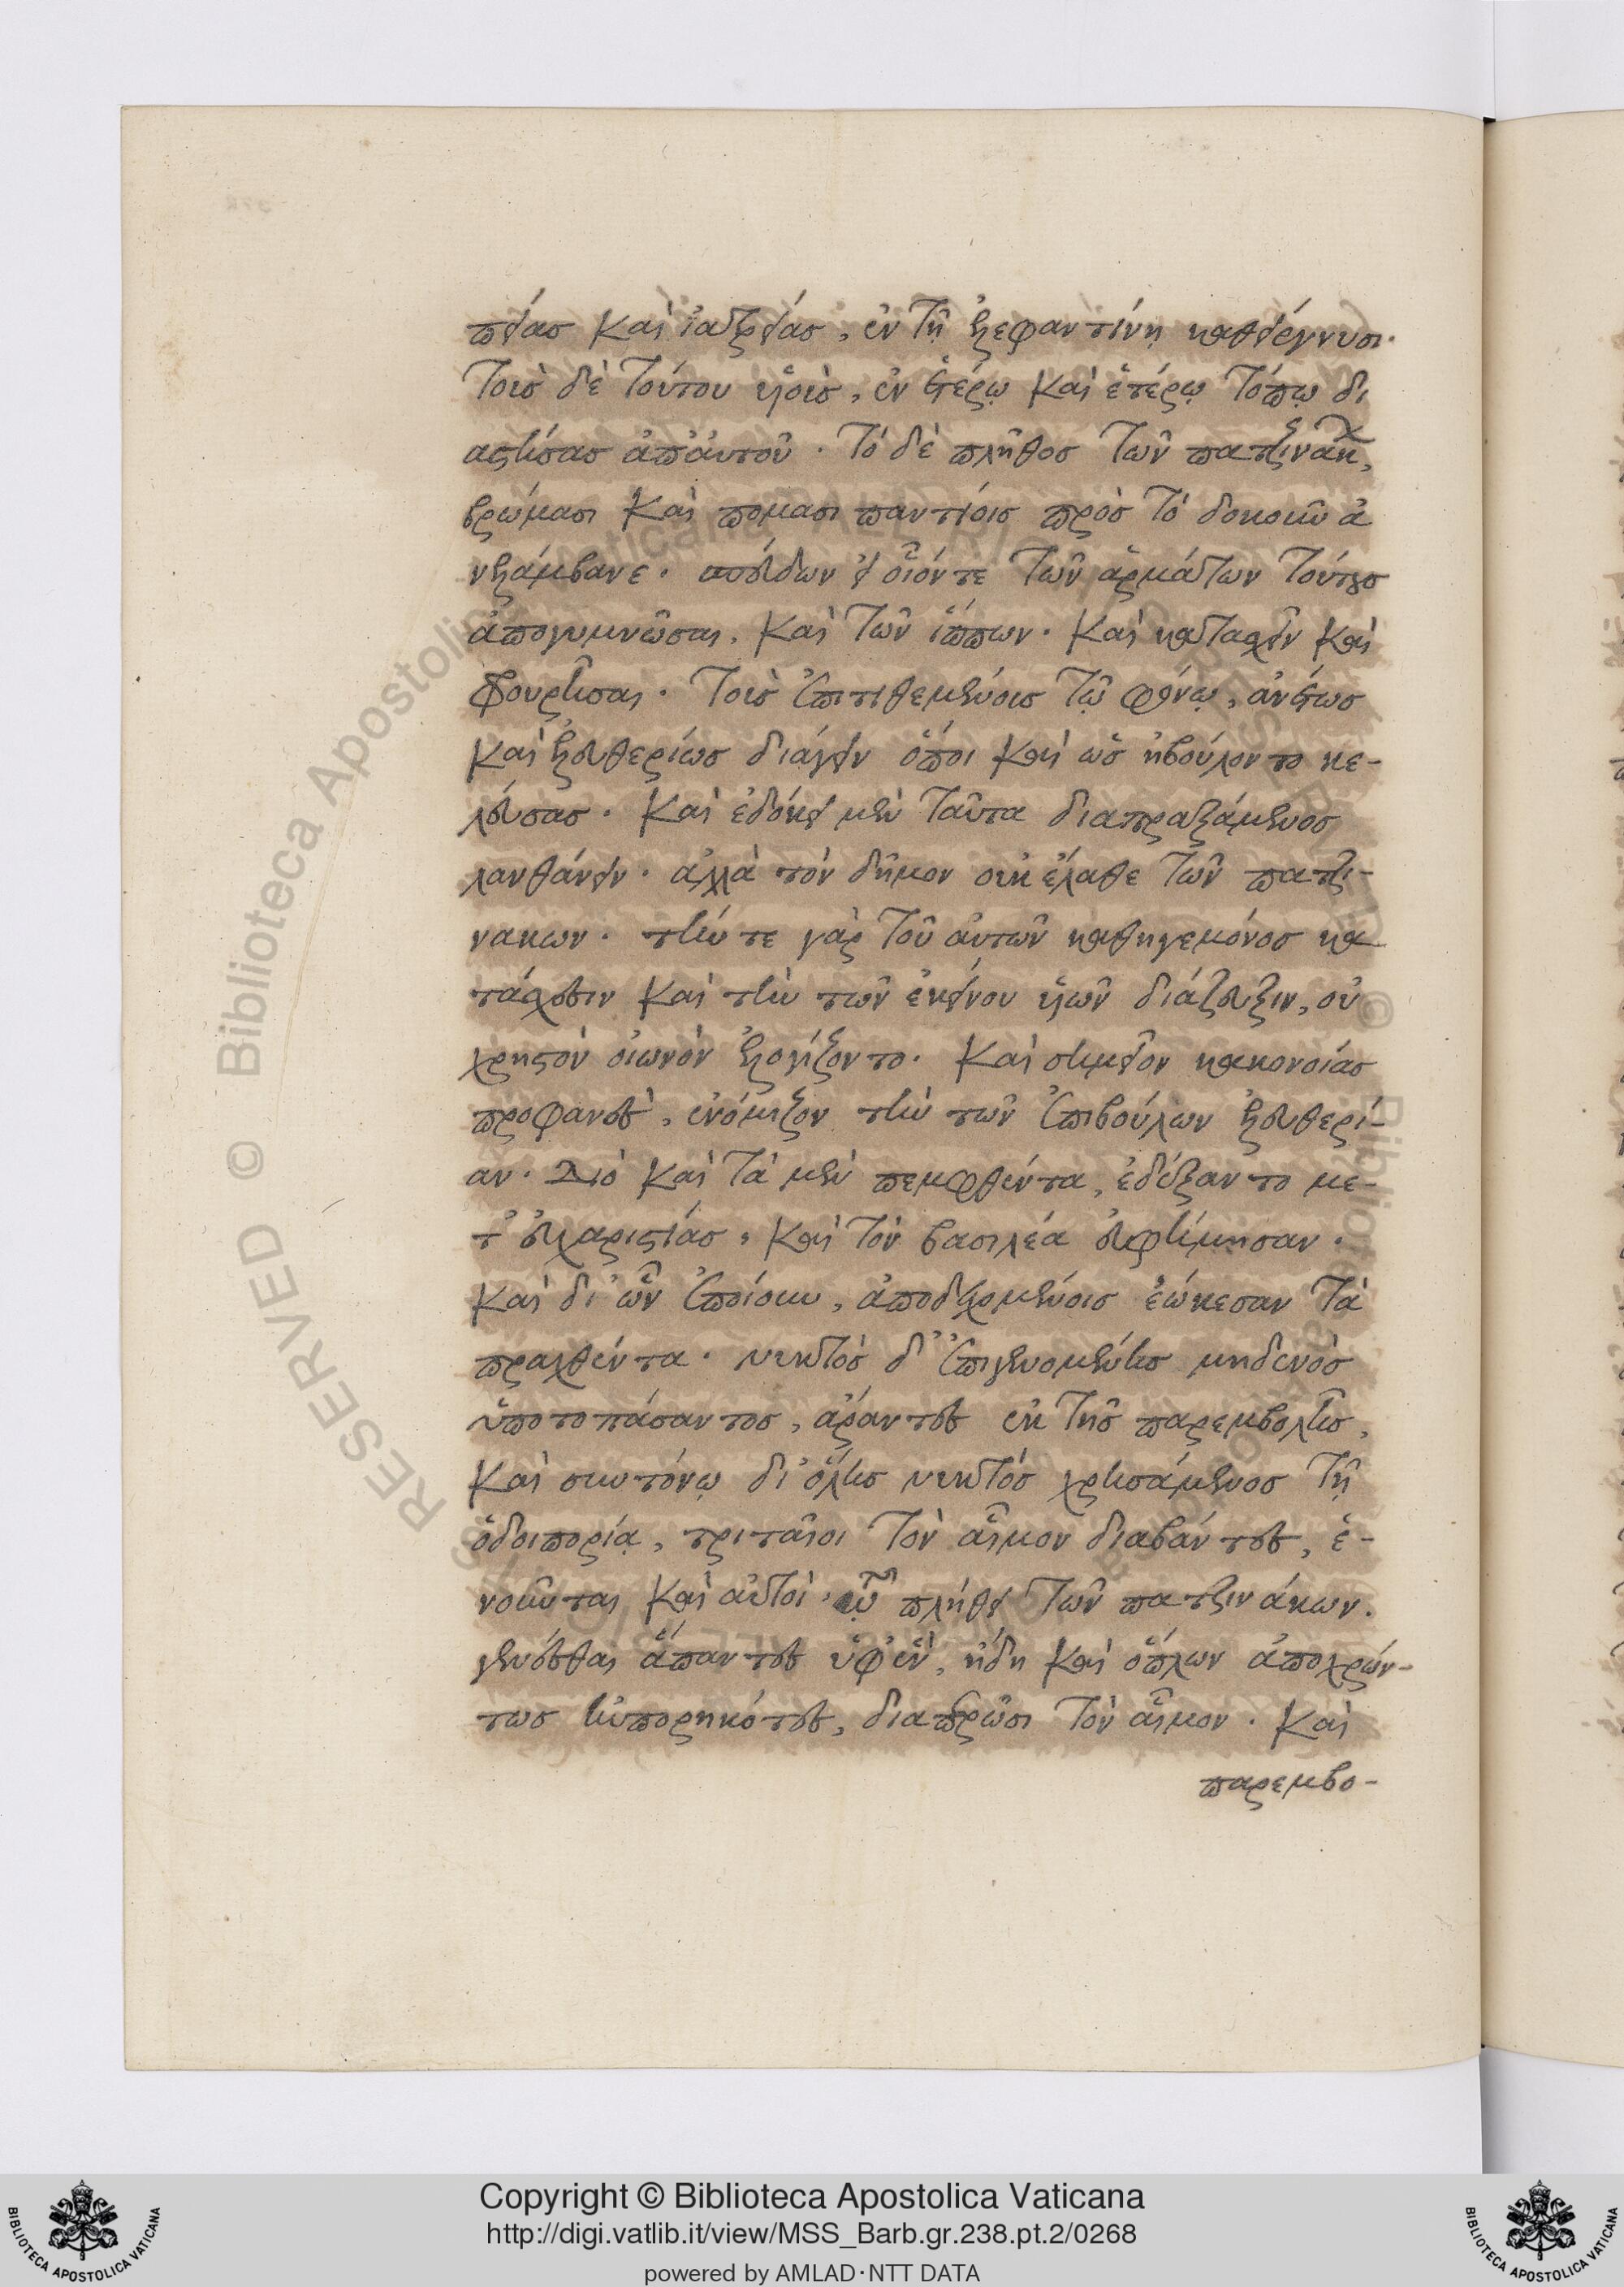 πείας καὶ ἰατρείας, ἐν τῇ ἐλεφαντίνῃ καθείργνυσι.
τοῖς δὲ τούτου υἱοῖς, ἐν ἑτέρῳ καὶ ἑτέρῳ τόπῳ δι
αστήσας ἀπ' αὐτοῦ. τὸ δὲ πλῆθος τῶν πατζινάκ,
βρώμασι καὶ πόμασι παντίοις πρὸς τὸ δοκοῦν ἀ
νελάμβανε. σπεύδων εἰ οἷόντε τῶν ἁρμάτων τούτους
ἀπογυμνῶσαι, καὶ τῶν ἵππων. καὶ κατασχεῖν καὶ
φρουρῆσαι. τοῖς ἐπιτιθεμένοις τῷ , ἀνέτως
καὶ ἐλευθερίως διάγειν ὅποι καὶ ὡς ἠβούλοντο κε-
λεύσας. καὶ ἐδόκει μὲν ταῦτα διαπραξάμενος
λανθάνειν. ἀλλὰ τὸν δῆμον οὐκ ἔλαθε τῶν πατζι-
νακων. τήν τε γὰρ τοῦ αὐτῶν καθηγεμόνος κα
τάσχεσιν καὶ τὴν τῶν ἐκείνου υἱῶν διάζευξιν, οὐ
χρηστὸν οἰωνὸν ἐλογίζοντο. καὶ σημεῖον κακονοίας
προφανὲς, ἐνόμιζον τὴν τῶν ἐπιβούλων ἐλευθερί-
αν. Διὸ καὶ τὰ μὲν πεμφθέντα, ἐδέξαντο με-
τ' εὐχαριστίας, καὶ τὸν βασιλέα εὐφήμησαν.
καὶ δι' ὧν ἐποίουν, ἀποδεχομένοις ἐώκεσαν τὰ
πραχθέντα. νυκτὸς δ' ἐπιγενομένης μηδενὸς
ὑποτοπάσαντος, ἄραντες ἐκ τῆς παρεμβολῆς,
καὶ συντόνῳ δι' ὅλης νυκτός χρησάμενος τῇ
ὁδοιπορίᾳ, τριταῖοι τὸν αἷμον διαβάντες, ἑ-
νοῦνται καὶ αὐτοὶ τῷ πλήθει τῶν πατζινάκων.
γενέσθαι ἅπαντες ὑφ' ἓν, ἤδη καὶ ὅπλων ἀποχρών-
τως ηὐπορηκότες, διαπερῶσι τὸν αἷμον. καὶ
παρεμβο-
Copyright © Biblioteca Apostolica Vaticana
http://digi.vatlib.it/view/MSS_Barb.gr.238.pt.2/0268
powered by AMLAD·NTT DATA